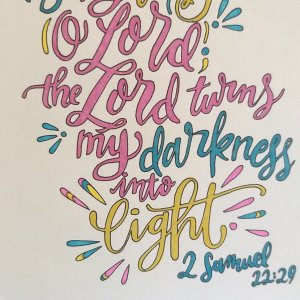 O Lord;
the Lord turns
my darkness
into
light.
2 Samuel
22:29